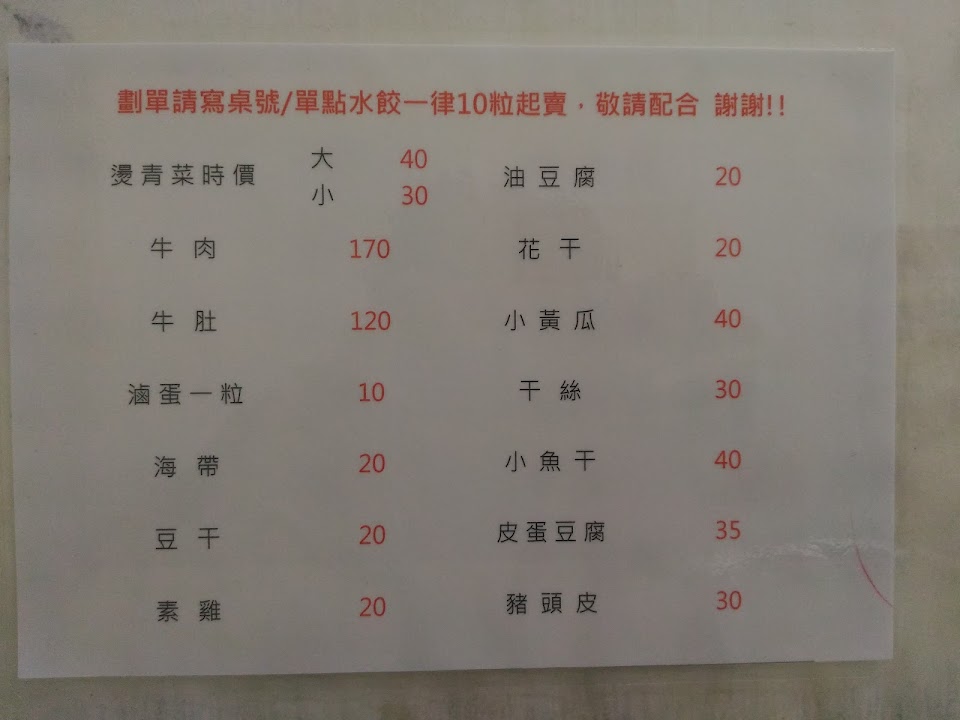 劃單請寫桌號/單點水餃一律10粒起賣，敬請配合 謝謝!!
燙青菜時價 大 40
小 30
牛肉 170
牛肚 120
滷蛋一粒 10
海帶 20
豆干 20
素雞 20
油豆腐 20
花干 20
小黃瓜 40
干絲 30
小魚干 40
皮蛋豆腐 35
豬頭皮 30